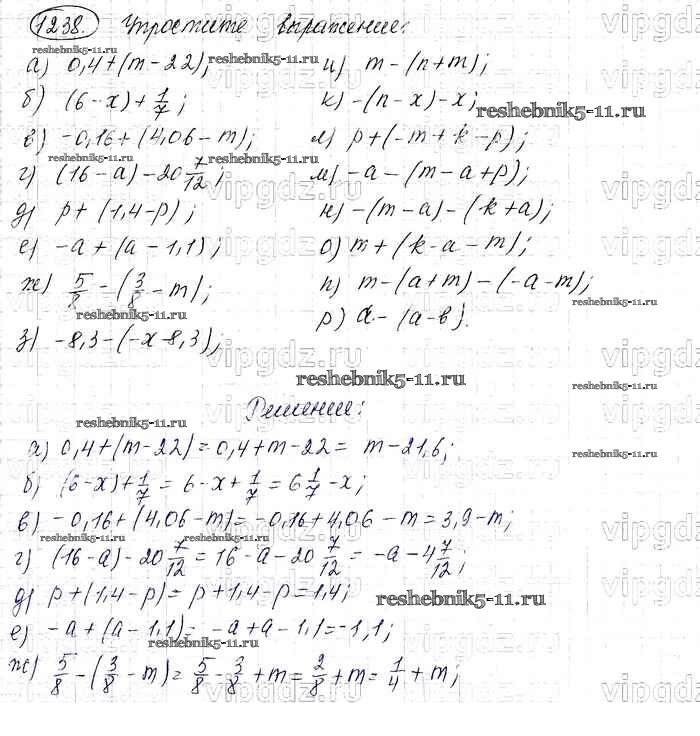 1238. Упростите выражение:
а) 0,4+(m-22);
б) (6-x)+1/7;
в) -0,16+(4,06-m);
г) (16-a)-20 7/12;
д) p+(1,4-p);
е) -a+(a-1,1);
ж) 5/8-(3/8-m);
з) -8,3-(-x-8,3);
и) m-(n+m);
к) -(n-x)-x;
л) p+(-m+k-p);
м) -a-(m-a+p);
н) -(m-a)-(k+a);
о) m+(k-a-m);
п) m-(a+m)-(-a-m);
р) a-(a-в).
Решение:
а) 0,4+(m-22)=0,4+m-22= m-21,6;
б) (6-x)+1/7=6-x+1/7=6 1/7-x;
в) -0,16+(4,06-m)=-0,16+4,06-m=3,9-m;
г) (16-a)-20 7/12=16-a-20 7/12=-a-4 7/12;
д) p+(1,4-p)=p+1,4-p=1,4;
е) -a+(a-1,1)=-a+a-1,1=-1,1;
ж) 5/8-(3/8-m)=5/8-3/8+m=2/8+m=1/4+m;
reshebnik5-11.ru
vipgdz.ru